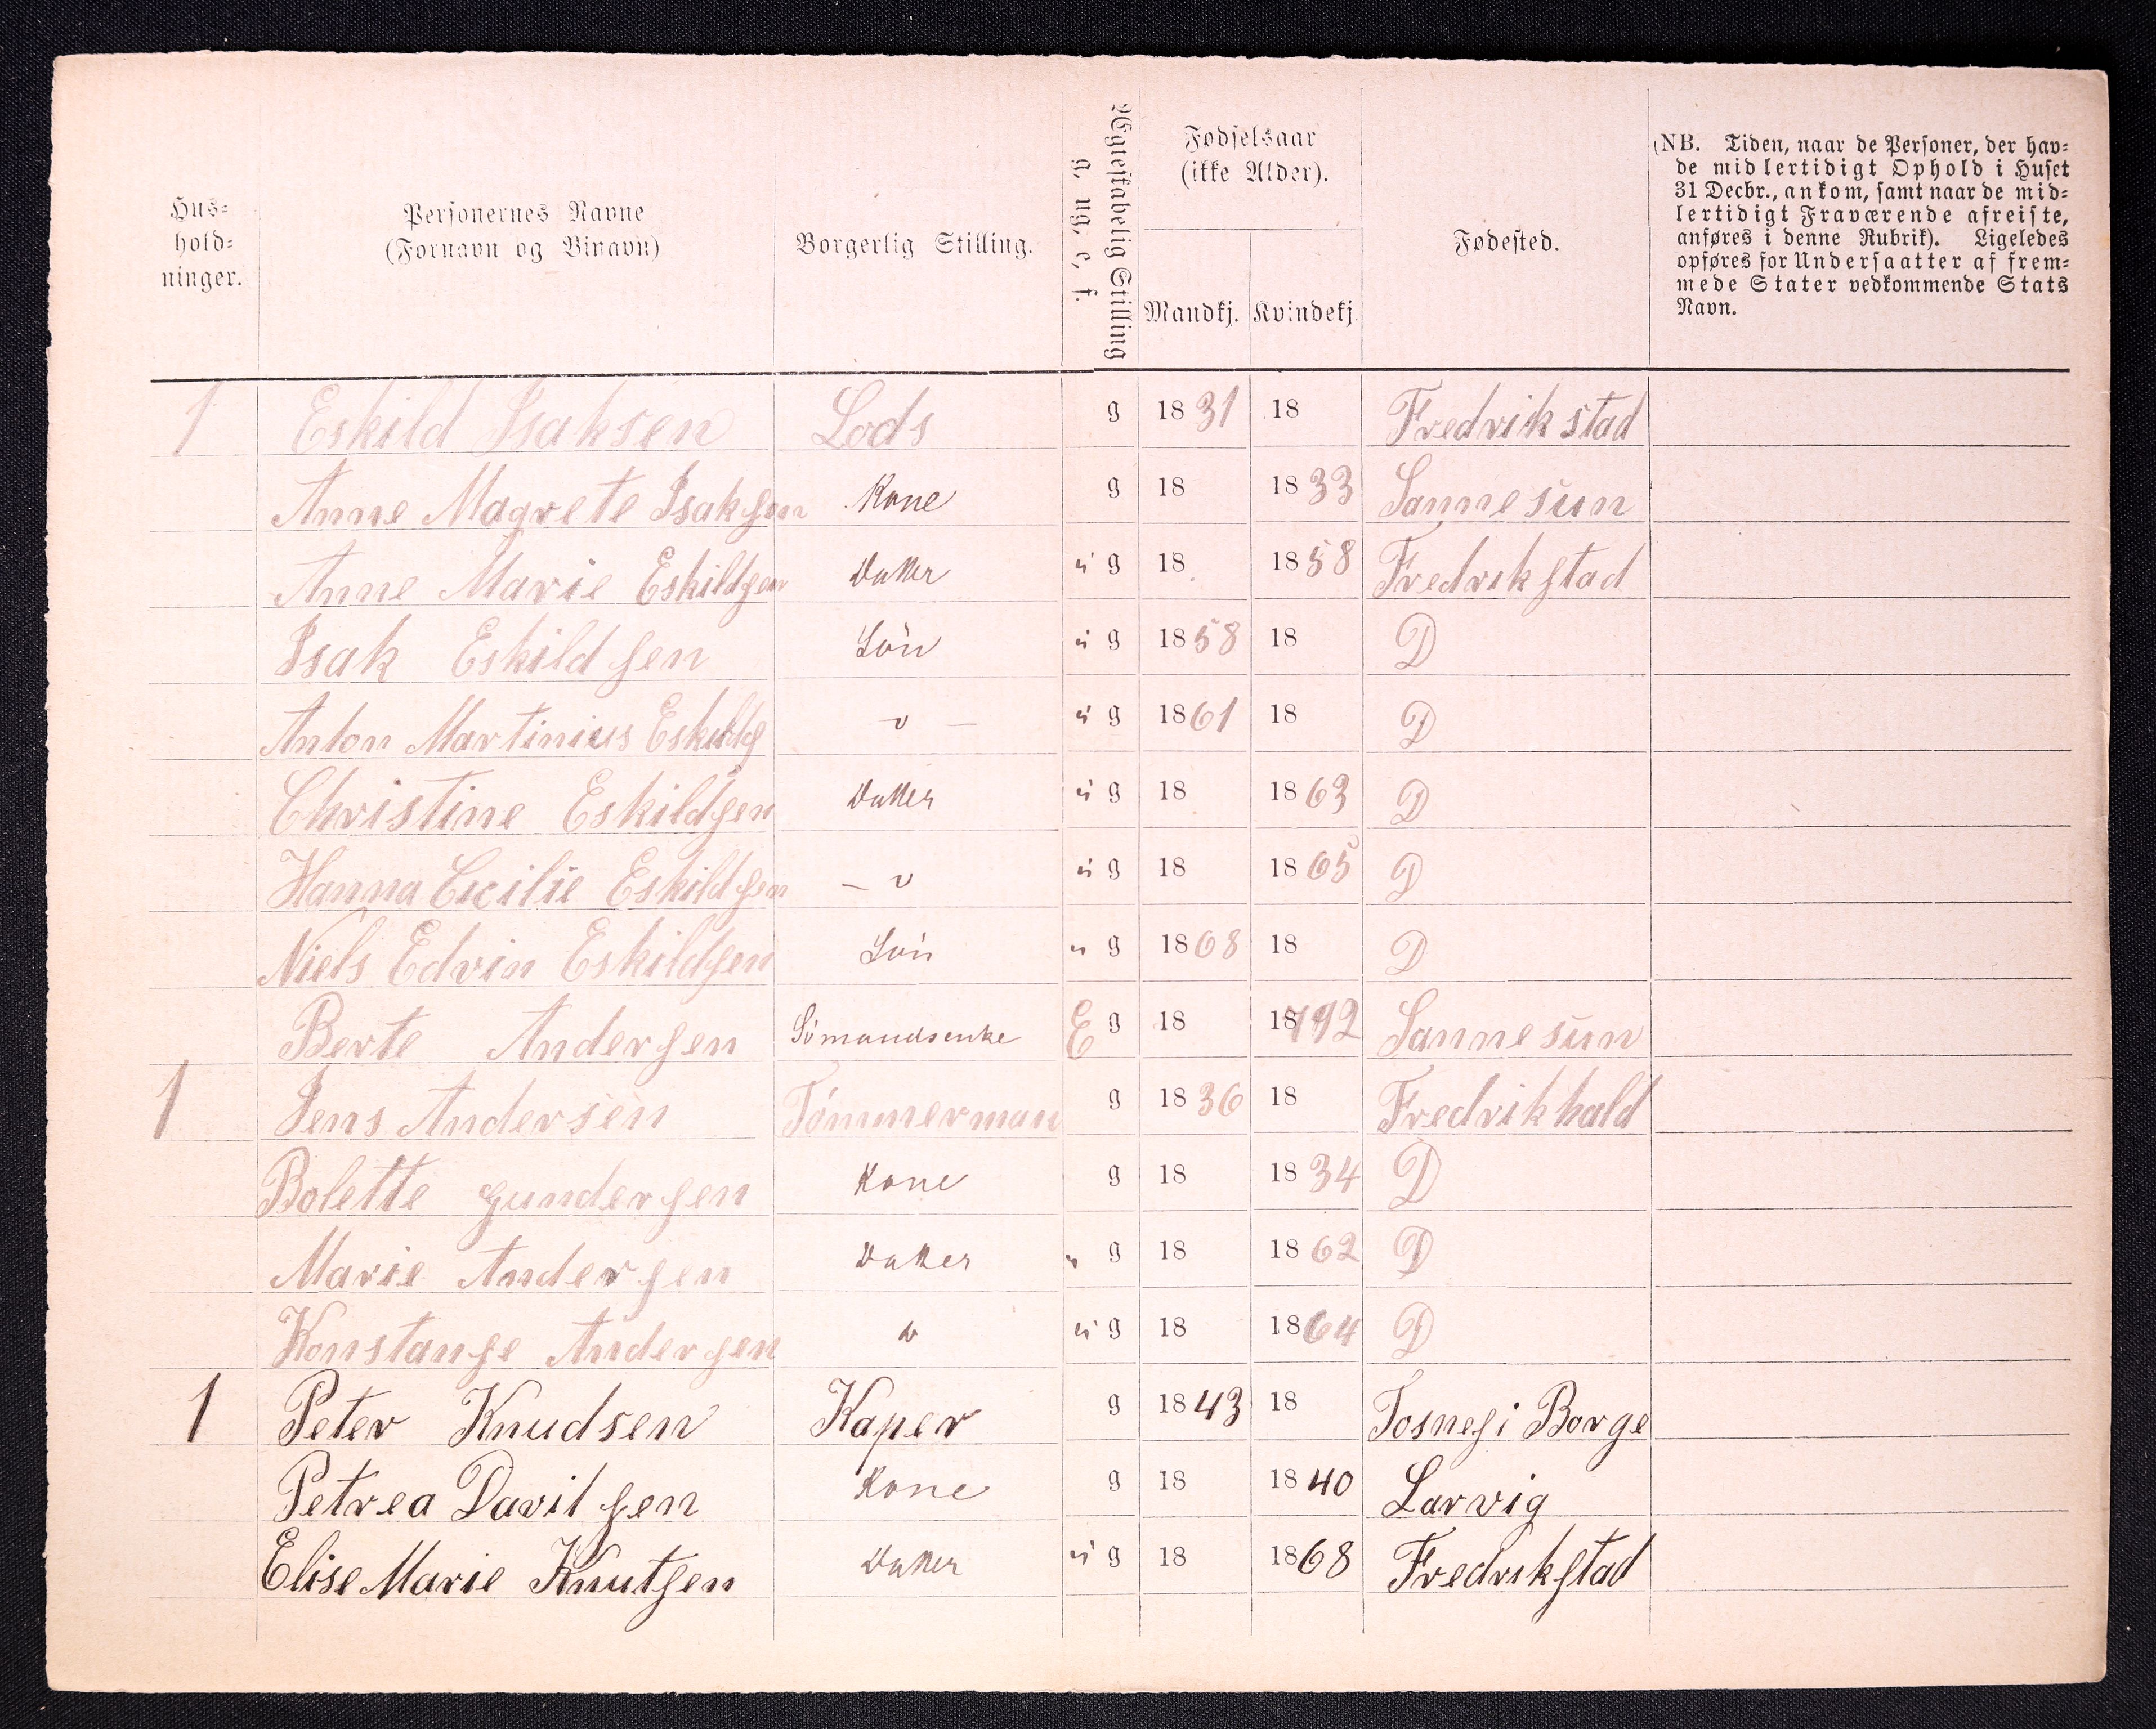 Hus=
hold=
ninger.
Personernes Navne
(Fornavn og Binavn)
Borgerlig Stilling.
Ægteskabelig Stilling
g, ug, e, f.
Fødselsaar
(ikke Alder).
Mandkj. Kvindekj.
Fødested.
(NB. Tiden, naar de Personer, der hav=
de midlertidigt Ophold i Huset
31 Decbr., ankom, samt naar de mid=
lertidigt Fraværende afreiste,
anføres i denne Rubrik). Ligeledes
opføres for Undersaatter af frem=
mede Stater vedkommende Stats
Navn.
1 Eskild Isaksen Lods g 1831 18 Fredrikstad
Anne Magrete Isaksen Kone g 18 1833 Sannesun
Anne Marie Eskildsen Datter ug 18 1858 Fredrikstad
Isak Eskildsen Søn ug 1858 18 D
Anton Martinius Eskilds - v - ug 1861 18 D
Christine Eskildsen Datter ug 18 1863 D
Hanna Cicilie Eskildsen - v ug 18 1865 D
Niels Edvin Eskildsen Søn ug 1868 18 D
Berte Andersen Sømandsenke E g 18 18792 Sannesun
1 Jens Andersen Tømmerman g 1836 18 Fredrikhald
Bolette gundersen Kone g 18 1834 D
Marie Andersen Datter ug 18 1862 D
Konstanse Andersen v ug 18 1864 D
1 Peter Knudsen Kaper g 1843 18 Tosnes i Borge
Petrea Davitsen Kone g 18 1840 Larvig
Elise Marie Knutsen Datter ug 18 1868 Fredrikstad